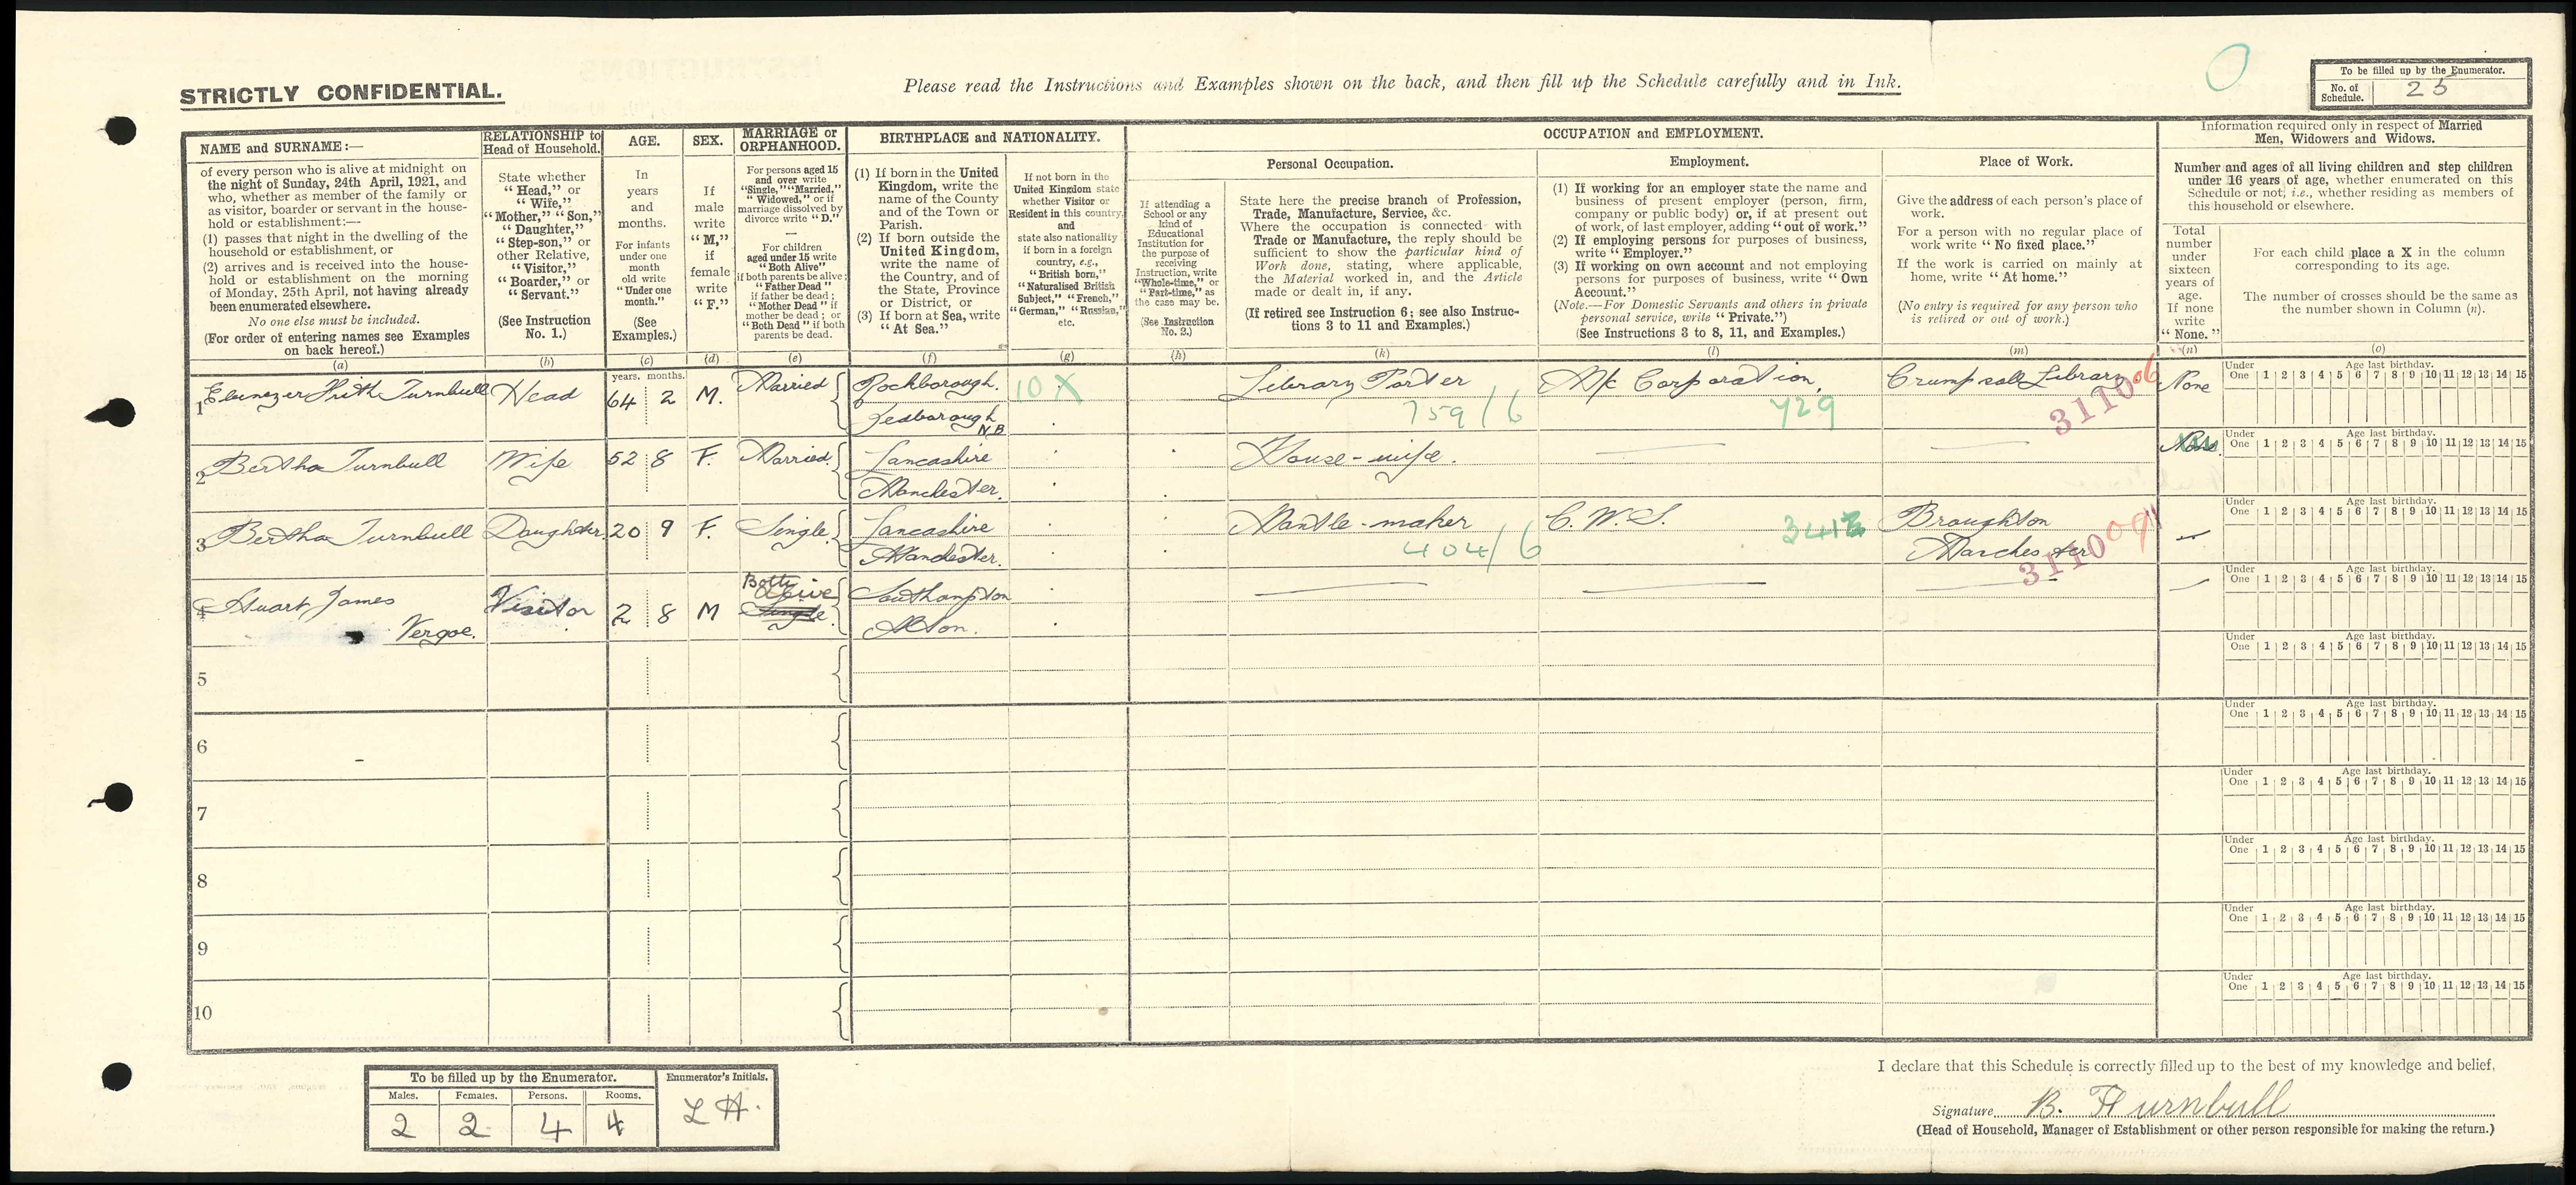 STRICTLY CONFIDENTIAL.
Please read the Instructions and Examples shown on the back, and then fill up the Schedule carefully and in Ink.
To be filled up by the Enumerator.
No. of Schedule. 25
NAME and SURNAME:—
of every person who is alive at midnight on
the night of Sunday, 24th April, 1921, and
who, whether as member of the family or
as visitor, boarder or servant in the house-
hold or establishment:—
(1) passes that night in the dwelling of the
household or establishment, or
(2) arrives and is received into the house-
hold or establishment on the morning
of Monday, 25th April, not having already
been enumerated elsewhere.
No one else must be included.
(For order of entering names see Examples
on back hereof.)
(a)
RELATIONSHIP to
Head of Household.
State whether
"Head," or
"Wife,"
"Mother," "Son,"
"Daughter,"
"Step-son," or
other Relative,
"Visitor,"
"Boarder," or
"Servant."
(See Instruction
No. 1.)
(b)
AGE.
In
years
and
months.
For infants
under one
month
old write
"Under one
month."
(See
Examples.)
(c)
SEX.
If
male
write
"M,"
if
female
write
"F."
(d)
MARRIAGE or
ORPHANHOOD.
For persons aged 15
and over write
"Single," "Married,"
"Widowed," or if
marriage dissolved by
divorce write "D."
For children
aged under 15 write
"Both Alive"
if both parents be alive;
"Father Dead"
if father be dead;
"Mother Dead" if
mother be dead; or
"Both Dead" if both
parents be dead.
(e)
BIRTHPLACE and NATIONALITY.
(1) If born in the United
Kingdom, write the
name of the County
and of the Town or
Parish.
(2) If born outside the
United Kingdom,
write the name of
the Country, and of
the State, Province
or District, or
(3) If born at Sea, write
"At Sea."
(f)
If not born in the
United Kingdom state
whether Visitor or
Resident in this country,
and
state also nationality
if born in a foreign
country, e.g.,
"British born,"
"Naturalised British
Subject," "French,"
"German," "Russian,"
etc.
(g)
OCCUPATION and EMPLOYMENT.
If attending a
School or any
kind of
Educational
Institution for
the purpose of
receiving
Instruction, write
"Whole-time," or
"Part-time," as
the case may be.
(See Instruction
No. 2.)
(h)
Personal Occupation.
State here the precise branch of Profession,
Trade, Manufacture, Service, &c.
Where the occupation is connected with
Trade or Manufacture, the reply should be
sufficient to show the particular kind of
Work done, stating, where applicable,
the Material worked in, and the Article
made or dealt in, if any.
(If retired see Instruction 6; see also Instruc-
tions 3 to 11 and Examples.)
(k)
Employment.
(1) If working for an employer state the name and
business of present employer (person, firm,
company or public body) or, if at present out
of work, of last employer, adding "out of work."
(2) If employing persons for purposes of business,
write "Employer."
(3) If working on own account and not employing
persons for purposes of business, write "Own
Account."
(Note.—For Domestic Servants and others in private
personal service, write "Private.")
(See Instructions 3 to 8, 11, and Examples.)
(l)
Place of Work.
Give the address of each person's place of
work.
For a person with no regular place of
work write "No fixed place."
If the work is carried on mainly at
home, write "At home."
(No entry is required for any person who
is retired or out of work.)
(m)
Information required only in respect of Married
Men, Widowers and Widows.
Number and ages of all living children and step children
under 16 years of age, whether enumerated on this
Schedule or not, i.e., whether residing as members of
this household or elsewhere.
Total
number
under
sixteen
years of
age.
If none
write
"None."
(n)
For each child place a X in the column
corresponding to its age.
The number of crosses should be the same as
the number shown in Column (n).
(o)
years. months.
Under One Age last birthday. 1 2 3 4 5 6 7 8 9 10 11 12 13 14 15
1 Ebenezer Turnbull Head 64 2 M. Married Rockborough. 10 X Library Porter M/c Corporation, Crumpsall Library 06 None
Jedborough N.B 759/6 729 3110
Under One Age last birthday. 1 2 3 4 5 6 7 8 9 10 11 12 13 14 15
2 Bertha Turnbull Wife 52 8 F. Married Lancashire House-wife. — — None
Manchester.
Under One Age last birthday. 1 2 3 4 5 6 7 8 9 10 11 12 13 14 15
3 Bertha Turnbull Daughter 20 9 F. Single Lancashire Mantle-maker C.W.S. Broughton
Manchester. 404/6 Manchester 3110
Under One Age last birthday. 1 2 3 4 5 6 7 8 9 10 11 12 13 14 15
4 Stuart James Visitor 2 8 M Both Alive Southampton — — —
Vergoe. Single
Under One Age last birthday. 1 2 3 4 5 6 7 8 9 10 11 12 13 14 15
5
Under One Age last birthday. 1 2 3 4 5 6 7 8 9 10 11 12 13 14 15
6
Under One Age last birthday. 1 2 3 4 5 6 7 8 9 10 11 12 13 14 15
7
Under One Age last birthday. 1 2 3 4 5 6 7 8 9 10 11 12 13 14 15
8
Under One Age last birthday. 1 2 3 4 5 6 7 8 9 10 11 12 13 14 15
9
Under One Age last birthday. 1 2 3 4 5 6 7 8 9 10 11 12 13 14 15
10
To be filled up by the Enumerator.
Males. Females. Persons. Rooms.
2 2 4 4
Enumerator's Initials.
L H.
I declare that this Schedule is correctly filled up to the best of my knowledge and belief,
Signature B. Turnbull
(Head of Household, Manager of Establishment or other person responsible for making the return.)